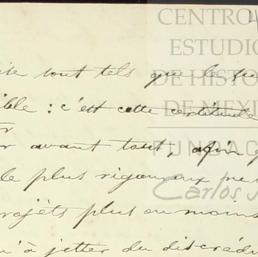 CENTRO
ESTUDIO
DE HISTO
DE MEXI
FUNDAC
Carlos
tout tels que le
ible : c'est cette certitude
r avant tout, afin
le plus rigoureux
rojèts plus ou moins
u'à jetter du discrédi